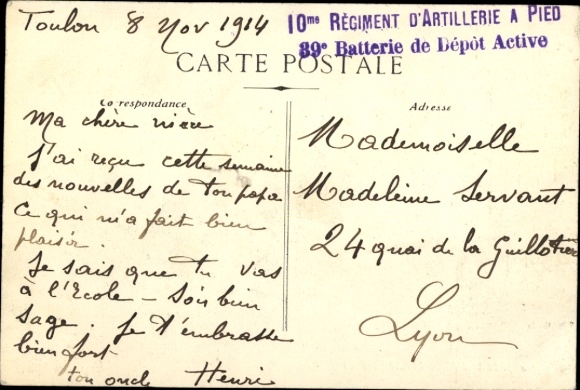 Toulon 8 Nov 1914
10me RÉGIMENT D'ARTILLERIE A PIED
39e Batterie de Dépôt Active
CARTE POSTALE
Correspondance
Ma chère nièce
J'ai reçu cette semaine
des nouvelles de ton papa
Ce qui m'a fait bien
plaisir.
Je sais que tu vas
à l'Ecole – Sois bien
sage. Je t'embrasse
bien fort
ton oncle Henri
Adresse
Mademoiselle
Madeleine Servant
24 quai de la Guillotière
Lyon